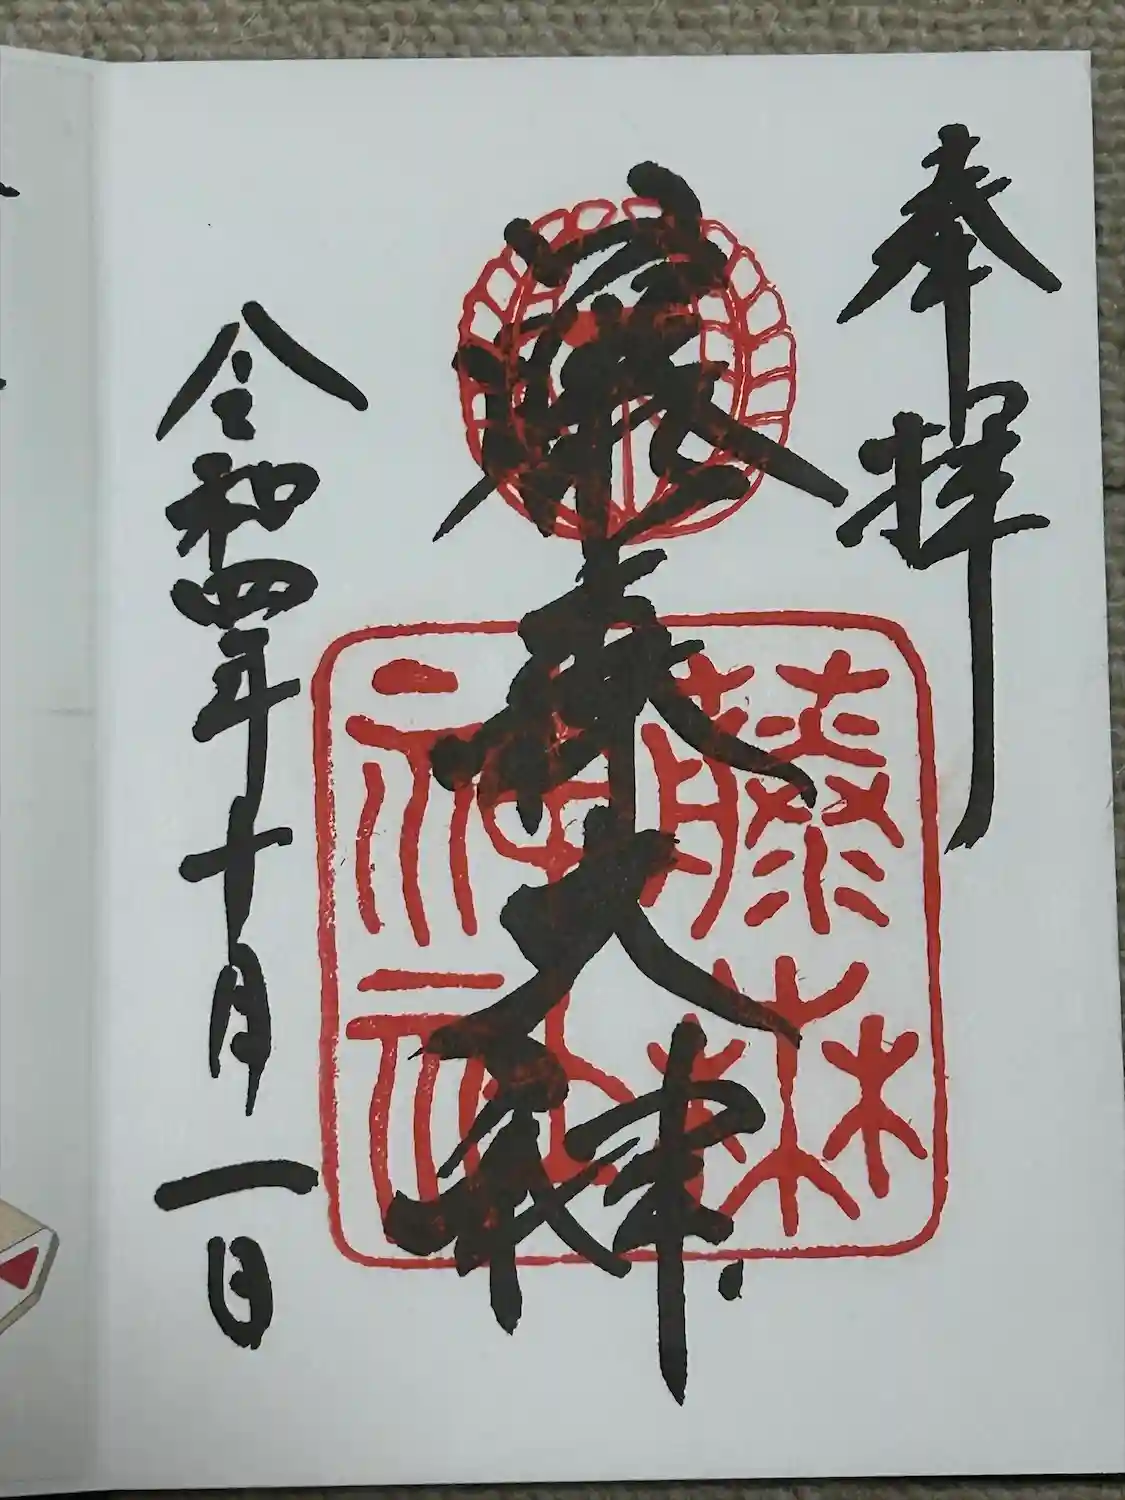 奉拝
藤森大神
藤森神社
令和四年十月一日